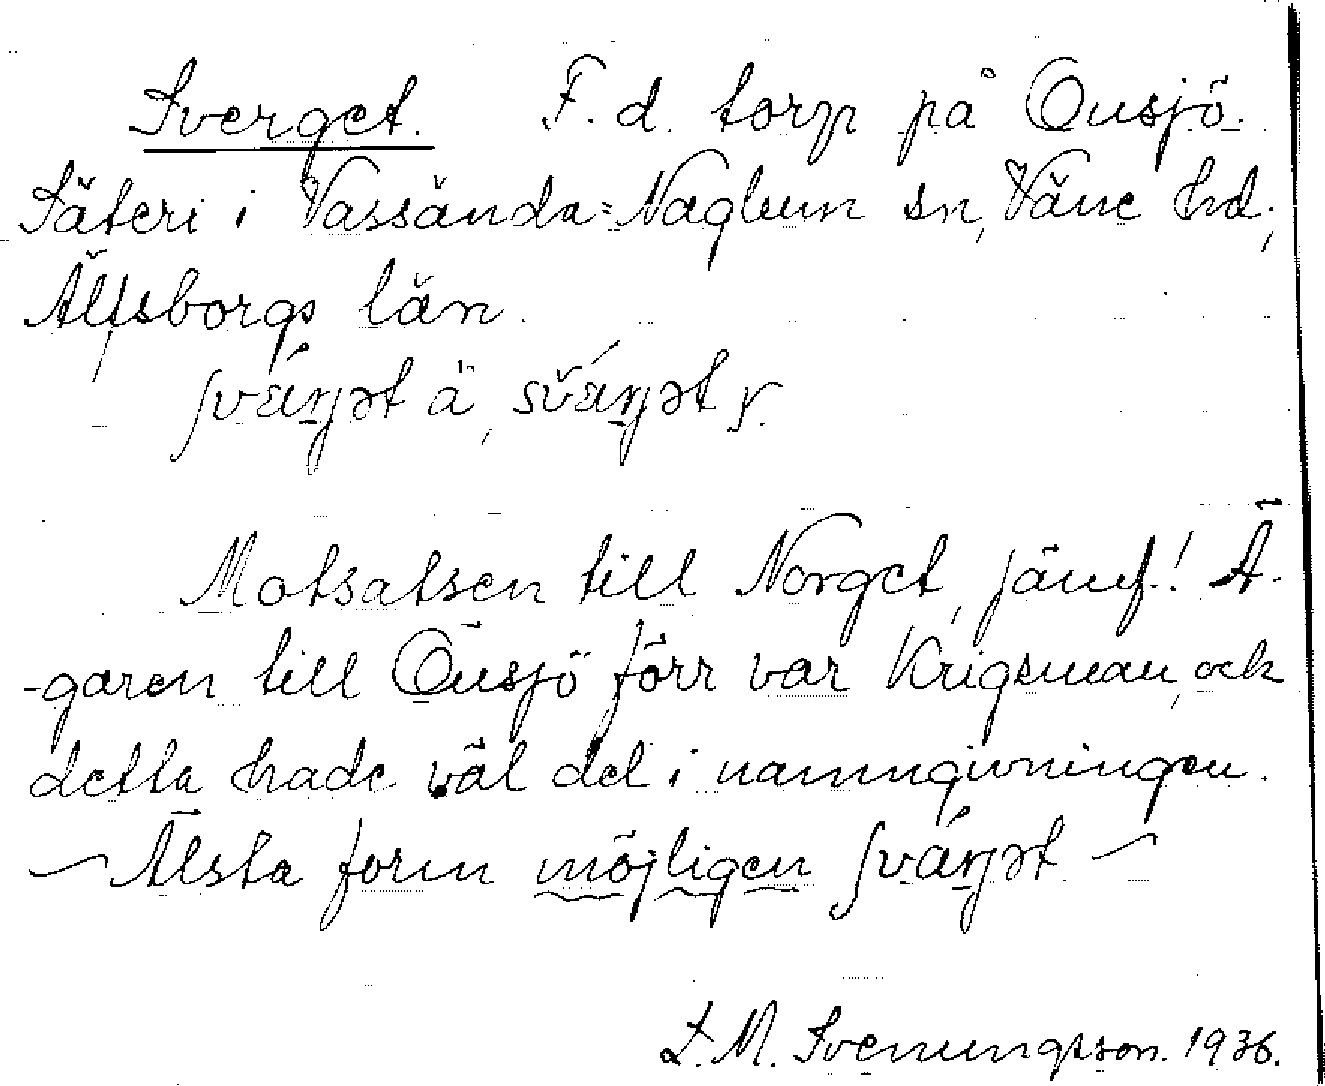 Sverget. F. d. torp på Önsjö
Säteri i Vassända=Naglum sn, Väne hd,
Älfsborgs län.
ä, y.
Motsatsen till Norget, jämf.! Ä-
-garen till Önsjö förr var Krigsman, ock
detta hade väl del i namngivningen.
— Älsta form möjligen —
L. M. Svenungsson. 1936.